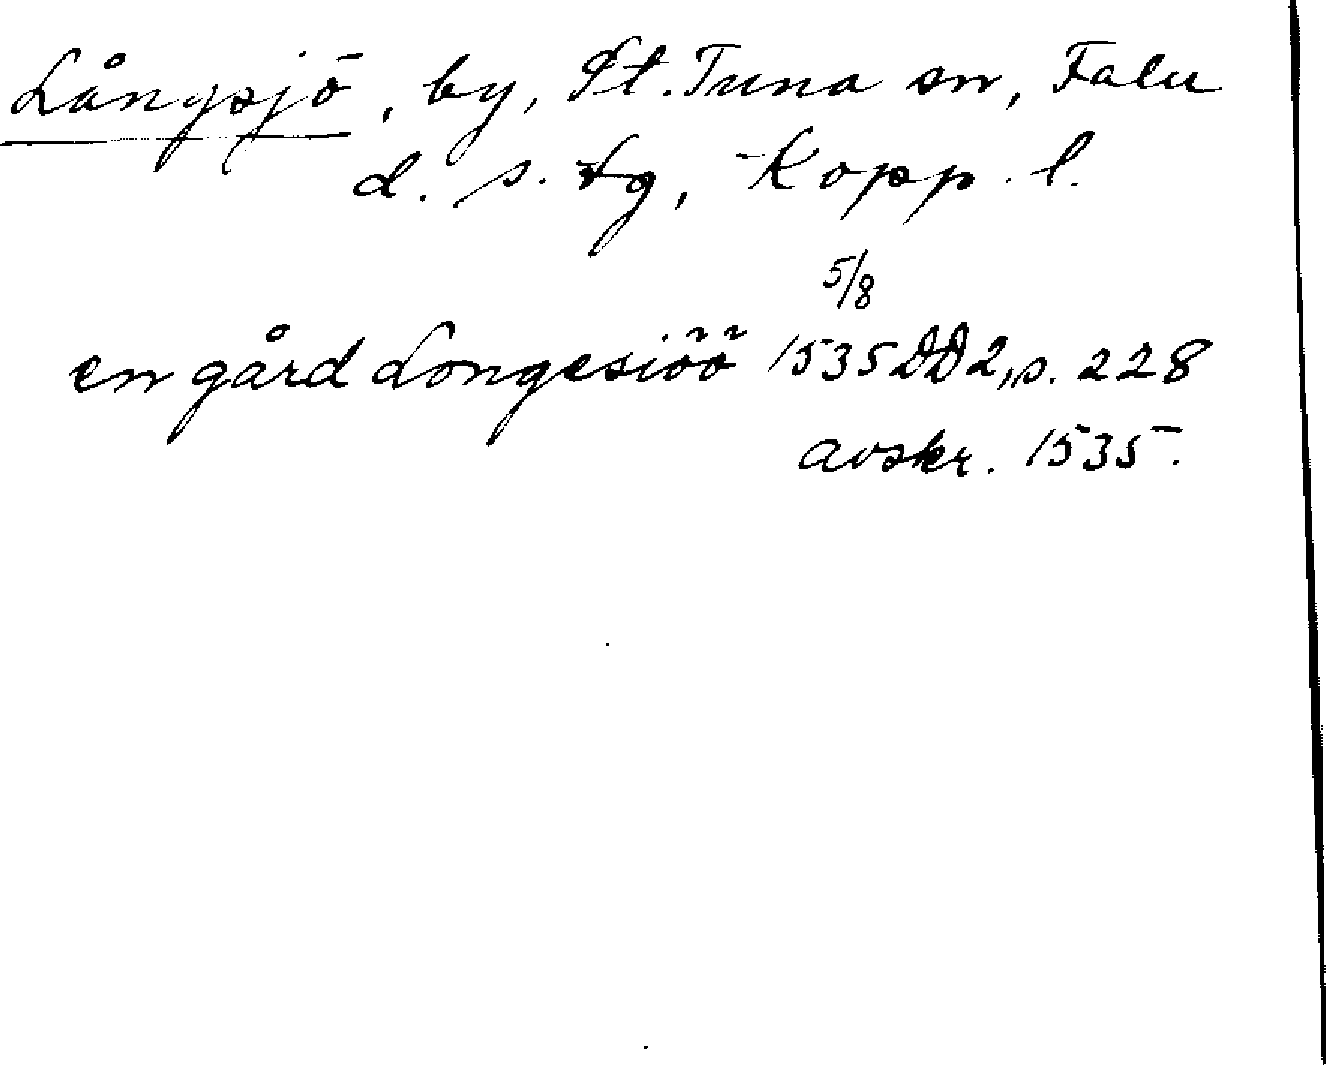 Långsjö, by, St. Tuna sn, Falu
d. s. tg, Kopp. l.
5/8
en gård Longesiöö 1535 DD2, s. 228
avskr. 1535.